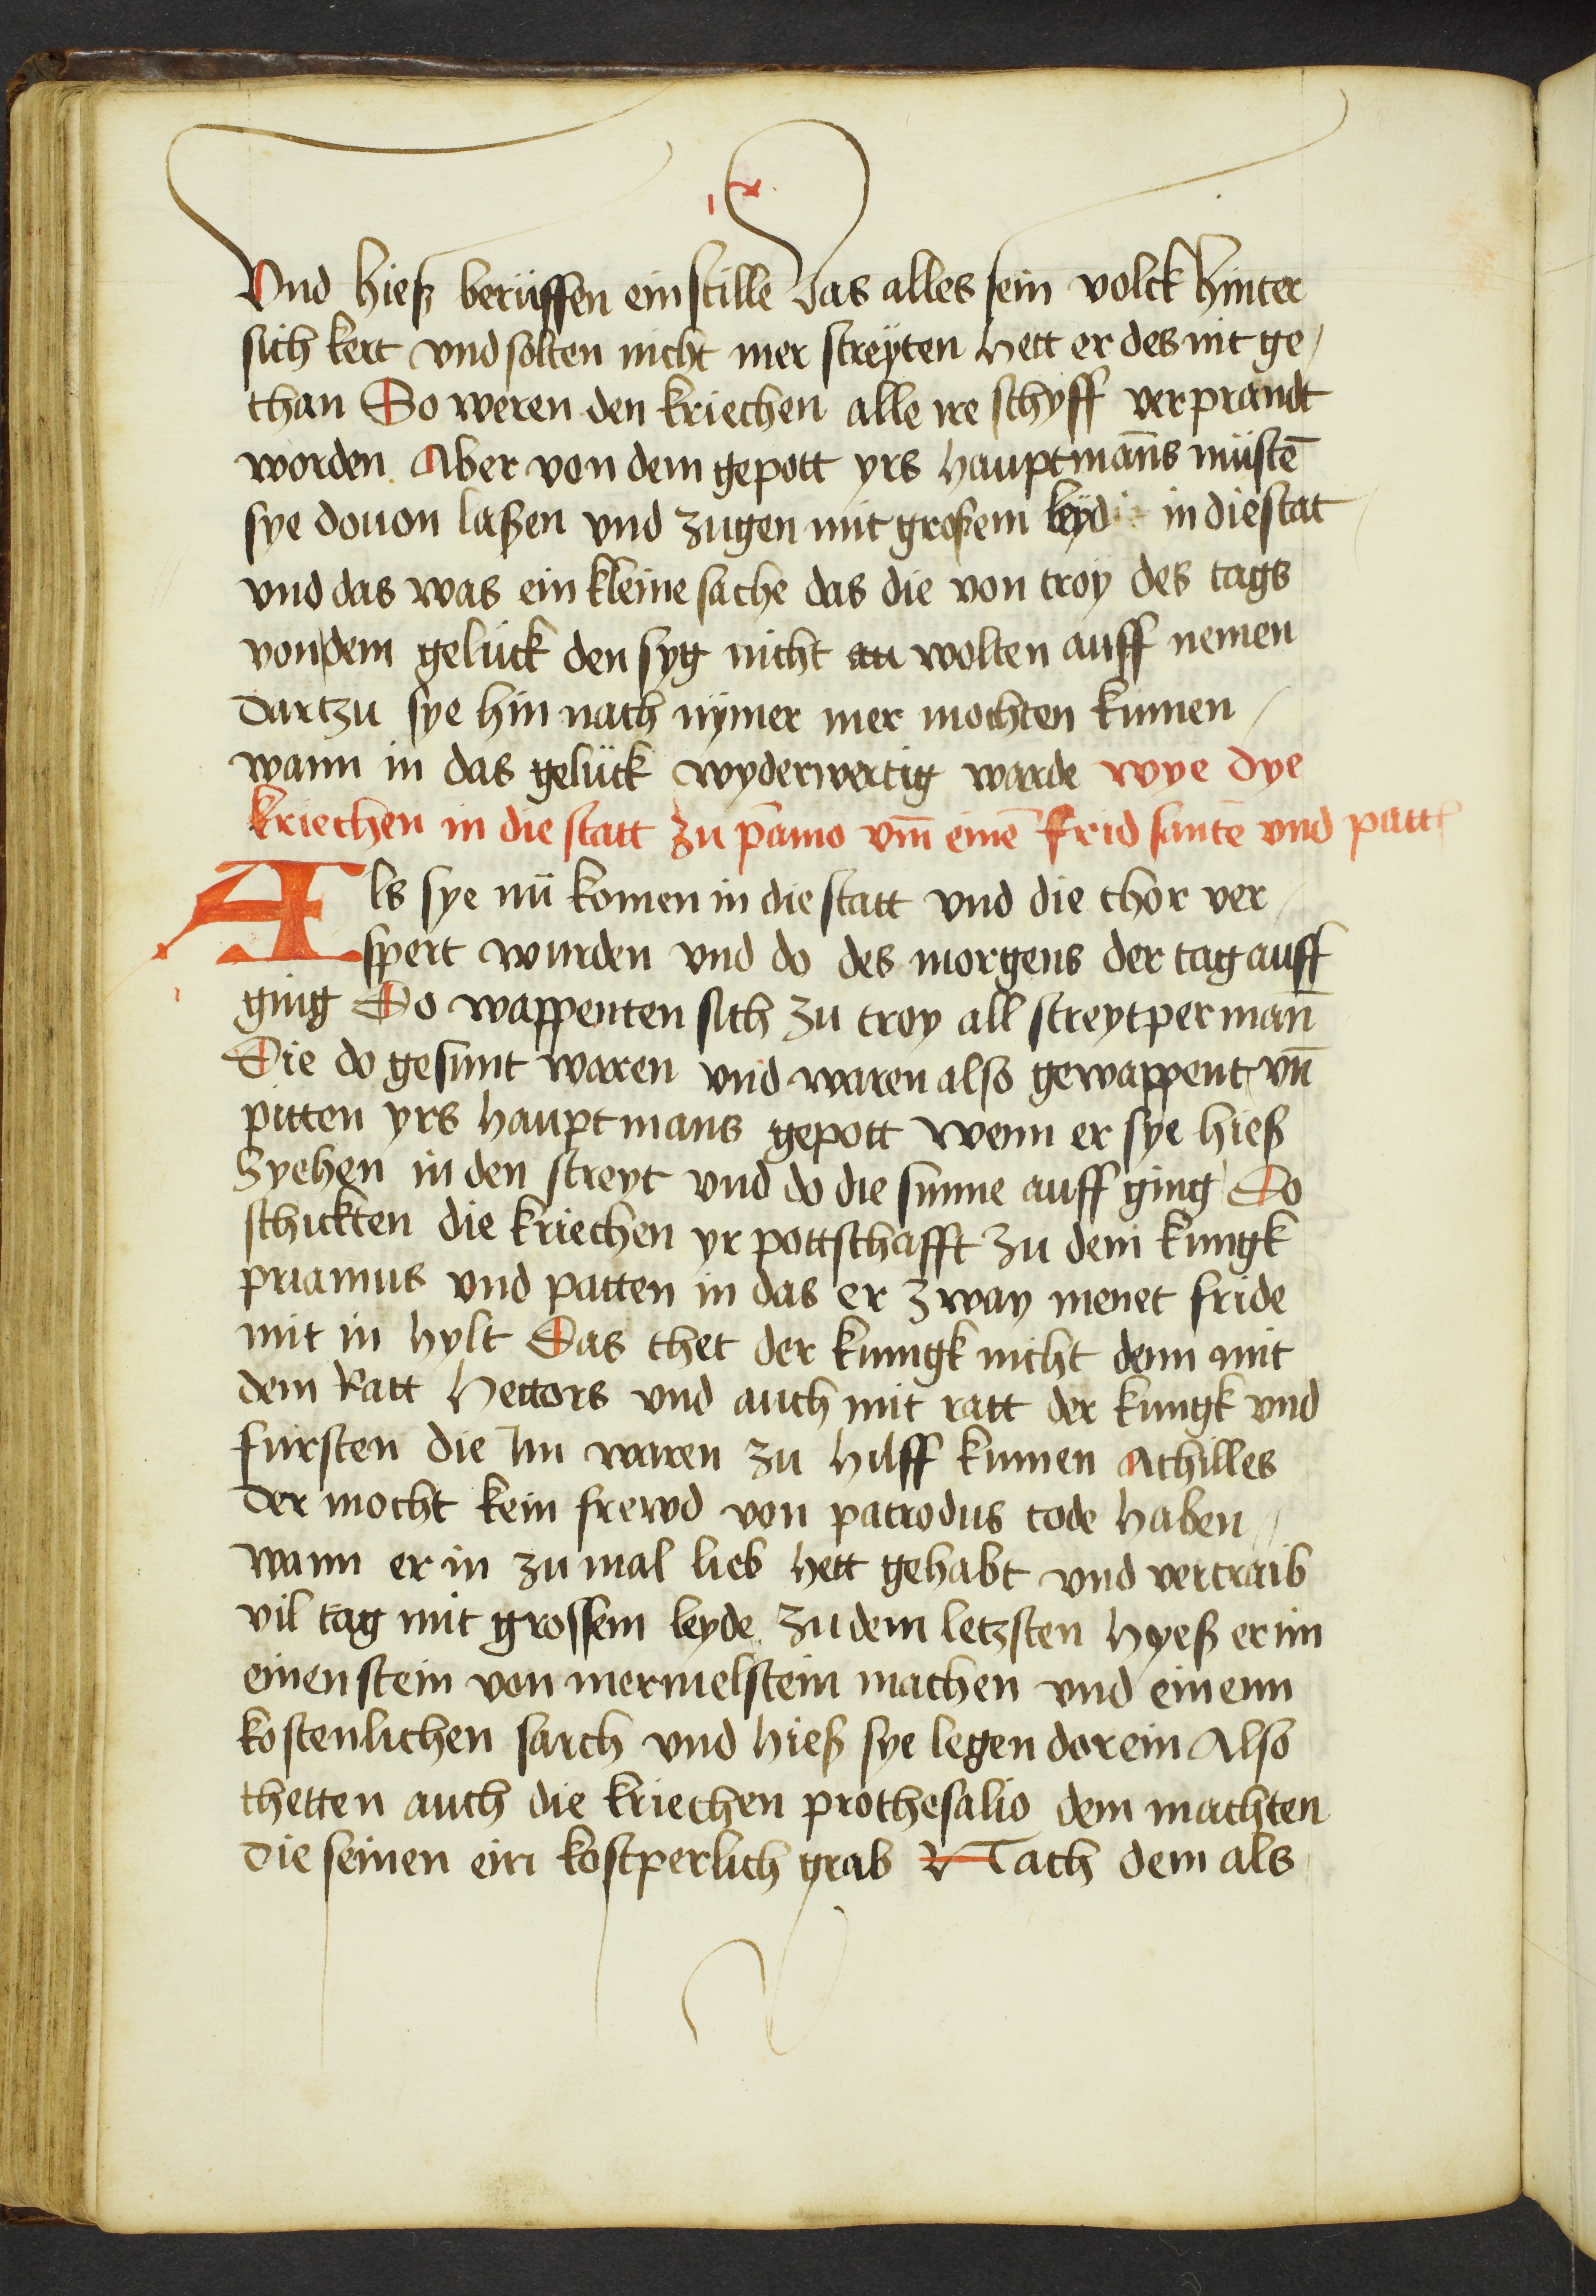 Vnd hieß berüffen ein stille Das alles sein volck hinter
sich kert vnd solten nicht mer streÿten Hett er des nit ge/
than So weren den kriechen alle ire schyff verprandt
worden Aber von dem gepott yrs hauptmans̄ müstē
sye douon laßen vnd zugen mit großem leÿd in die stat
vnd das was ein kleine sache das die von troy des tags
von dem gelück den syg nicht wolten auff nemen
dartzu sye hin nach nÿmer mer mochten kumen /
wann in das gelück wyderwertig warde wye dye
kriechen in die statt zu p̄amo vm̄ einē frid santē vnd patt
Als sye nü komen in die statt vnd die thor ver /
spert wurden vnd do des morgens der tag auff
ging Do wappenten sich zu troy all streytper man̄
Die do gesunt waren vnd waren also gewappent vn̄
pitten yrs hauptmans gepott wenn er sye hieß
zyehen in den streyt vnd do die sunne auff ging Do
schickten die kriechen yr pottschafft zu dem kungk
priamus vnd patten in das er zway menet fride
mit in hylt Das thet der kungk nicht denn mit
dem Ratt Hectors vnd auch mit ratt der kungk vnd
fursten die Im waren zu hilff kumen Achilles
der mocht kein frewd von patrodus tode haben //
wann er in zu mal lieb hett gehabt vnd vertraib
vil tag mit grossem leyde zu dem letzsten hyeß er im
einen stein von mermelstein machen vnd einenn
kostenlichen sarch vnd hieß sye legen dorein Also
thetten auch die kriechen prothesalio dem machten
die seinen ein kostperlich grab Nach dem als